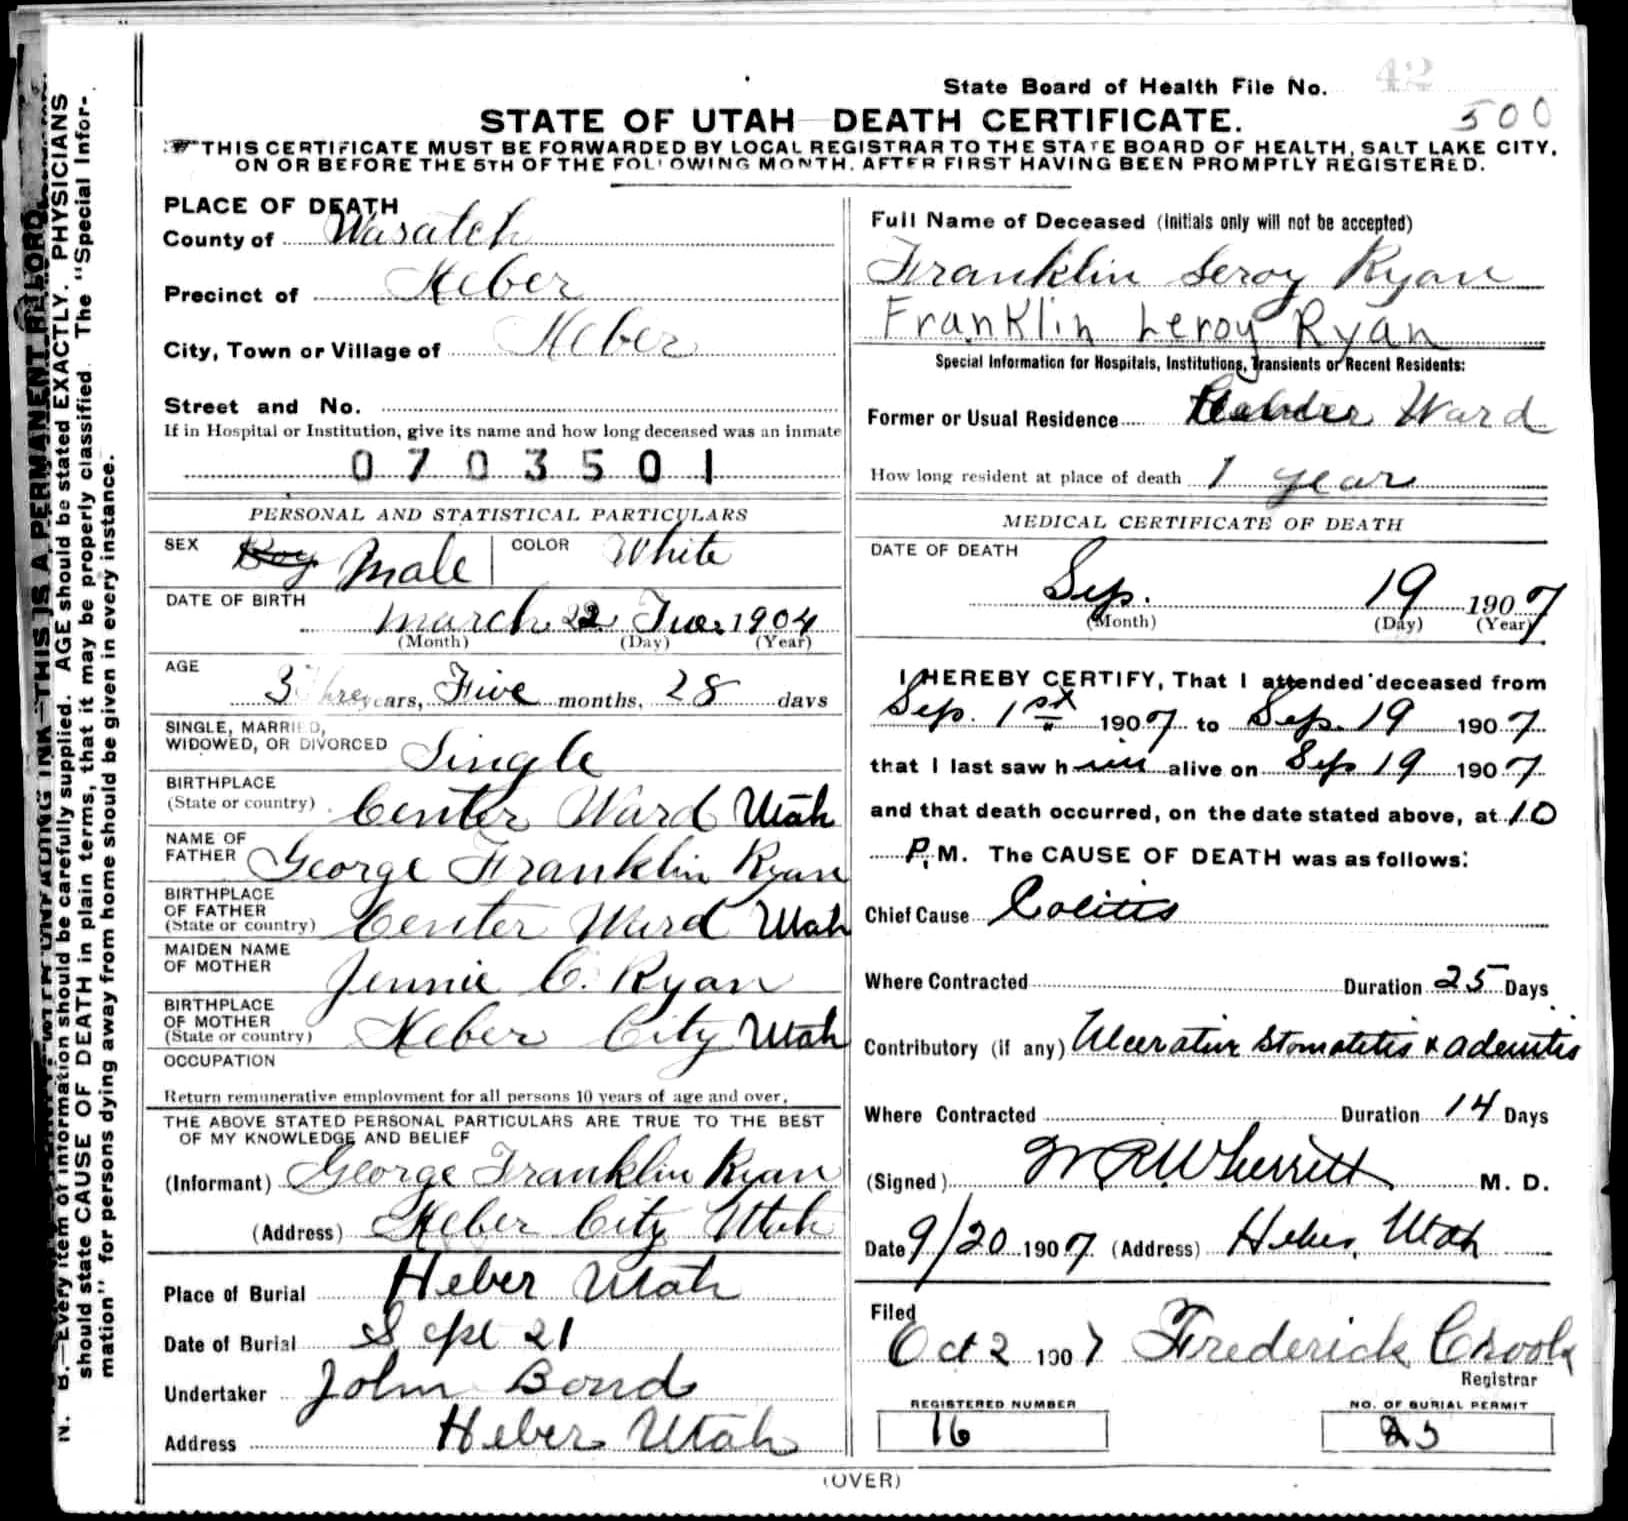 State Board of Health File No. 42
500
STATE OF UTAH DEATH CERTIFICATE.
THIS CERTIFICATE MUST BE FORWARDED BY LOCAL REGISTRAR TO THE STATE BOARD OF HEALTH, SALT LAKE CITY,
ON OR BEFORE THE 5TH OF THE FOLLOWING MONTH, AFTER FIRST HAVING BEEN PROMPTLY REGISTERED.
PLACE OF DEATH
County of Wasatch
Precinct of Heber
City, Town or Village of Heber
Street and No.
If in Hospital or Institution, give its name and how long deceased was an inmate
0703501
PERSONAL AND STATISTICAL PARTICULARS
SEX Boy Male COLOR White
DATE OF BIRTH
March 22 Tue. 1904
(Month) (Day) (Year)
AGE
3 Three years, Five months, 28 days
SINGLE, MARRIED,
WIDOWED, OR DIVORCED Single
BIRTHPLACE
(State or country) Center Ward Utah
NAME OF
FATHER George Franklin Ryan
BIRTHPLACE
OF FATHER
(State or country) Center Ward Utah
MAIDEN NAME
OF MOTHER Jennie C. Ryan
BIRTHPLACE
OF MOTHER
(State or country) Heber City Utah
OCCUPATION
Return remunerative employment for all persons 10 years of age and over.
THE ABOVE STATED PERSONAL PARTICULARS ARE TRUE TO THE BEST
OF MY KNOWLEDGE AND BELIEF
(Informant) George Franklin Ryan
(Address) Heber City Utah
Place of Burial Heber Utah
Date of Burial Sept 21
Undertaker John Bond
Address Heber Utah
Full Name of Deceased (Initials only will not be accepted)
Franklin Leroy Ryan
Franklin Leroy Ryan
Special Information for Hospitals, Institutions, Transients or Recent Residents:
Former or Usual Residence Ward
How long resident at place of death 1 year
MEDICAL CERTIFICATE OF DEATH
DATE OF DEATH
Sep. 19 1907
(Month) (Day) (Year)
I HEREBY CERTIFY, That I attended deceased from
Sep. 1st 1907 to Sep. 19 1907
that I last saw him alive on Sep 19 1907
and that death occurred, on the date stated above, at 10
P.M. The CAUSE OF DEATH was as follows:
Chief Cause Colitis
Where Contracted Duration 25 Days
Contributory (if any) Ulcerative Stomatitis & adenitis
Where Contracted Duration 14 Days
(Signed) M. D.
Date 9/20 1907 (Address) Heber, Utah
Filed
Oct 2 1907 Frederick Crook
Registrar
REGISTERED NUMBER
16
NO. OF BURIAL PERMIT
25
(OVER)
N. B.—Every item of information should be carefully supplied. AGE should be stated EXACTLY. PHYSICIANS
should state CAUSE OF DEATH in plain terms, that it may be properly classified. The "Special Infor-
mation" for persons dying away from home should be given in every instance.
WITH UNFADING INK—THIS IS A PERMANENT RECORD.